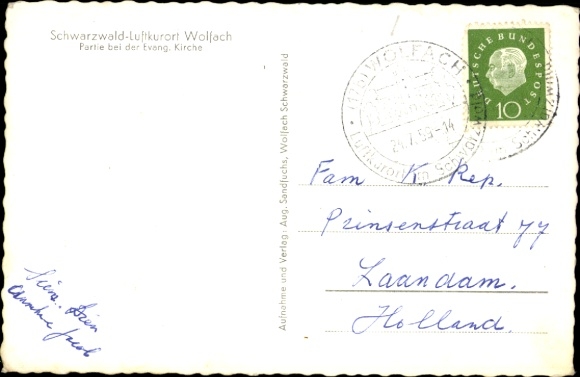 Schwarzwald-Luftkurort Wolfach
Partie bei der Evang. Kirche
Aufnahme und Verlag: Aug. Sandfuchs, Wolfach Schwarzwald
WOLFACH
24.7.59-14
Luftkurort im Schwarzwald
DEUTSCHE BUNDESPOST
10
Fam K. Rep.
Prinsenstraat 77
Zaandam.
Holland.